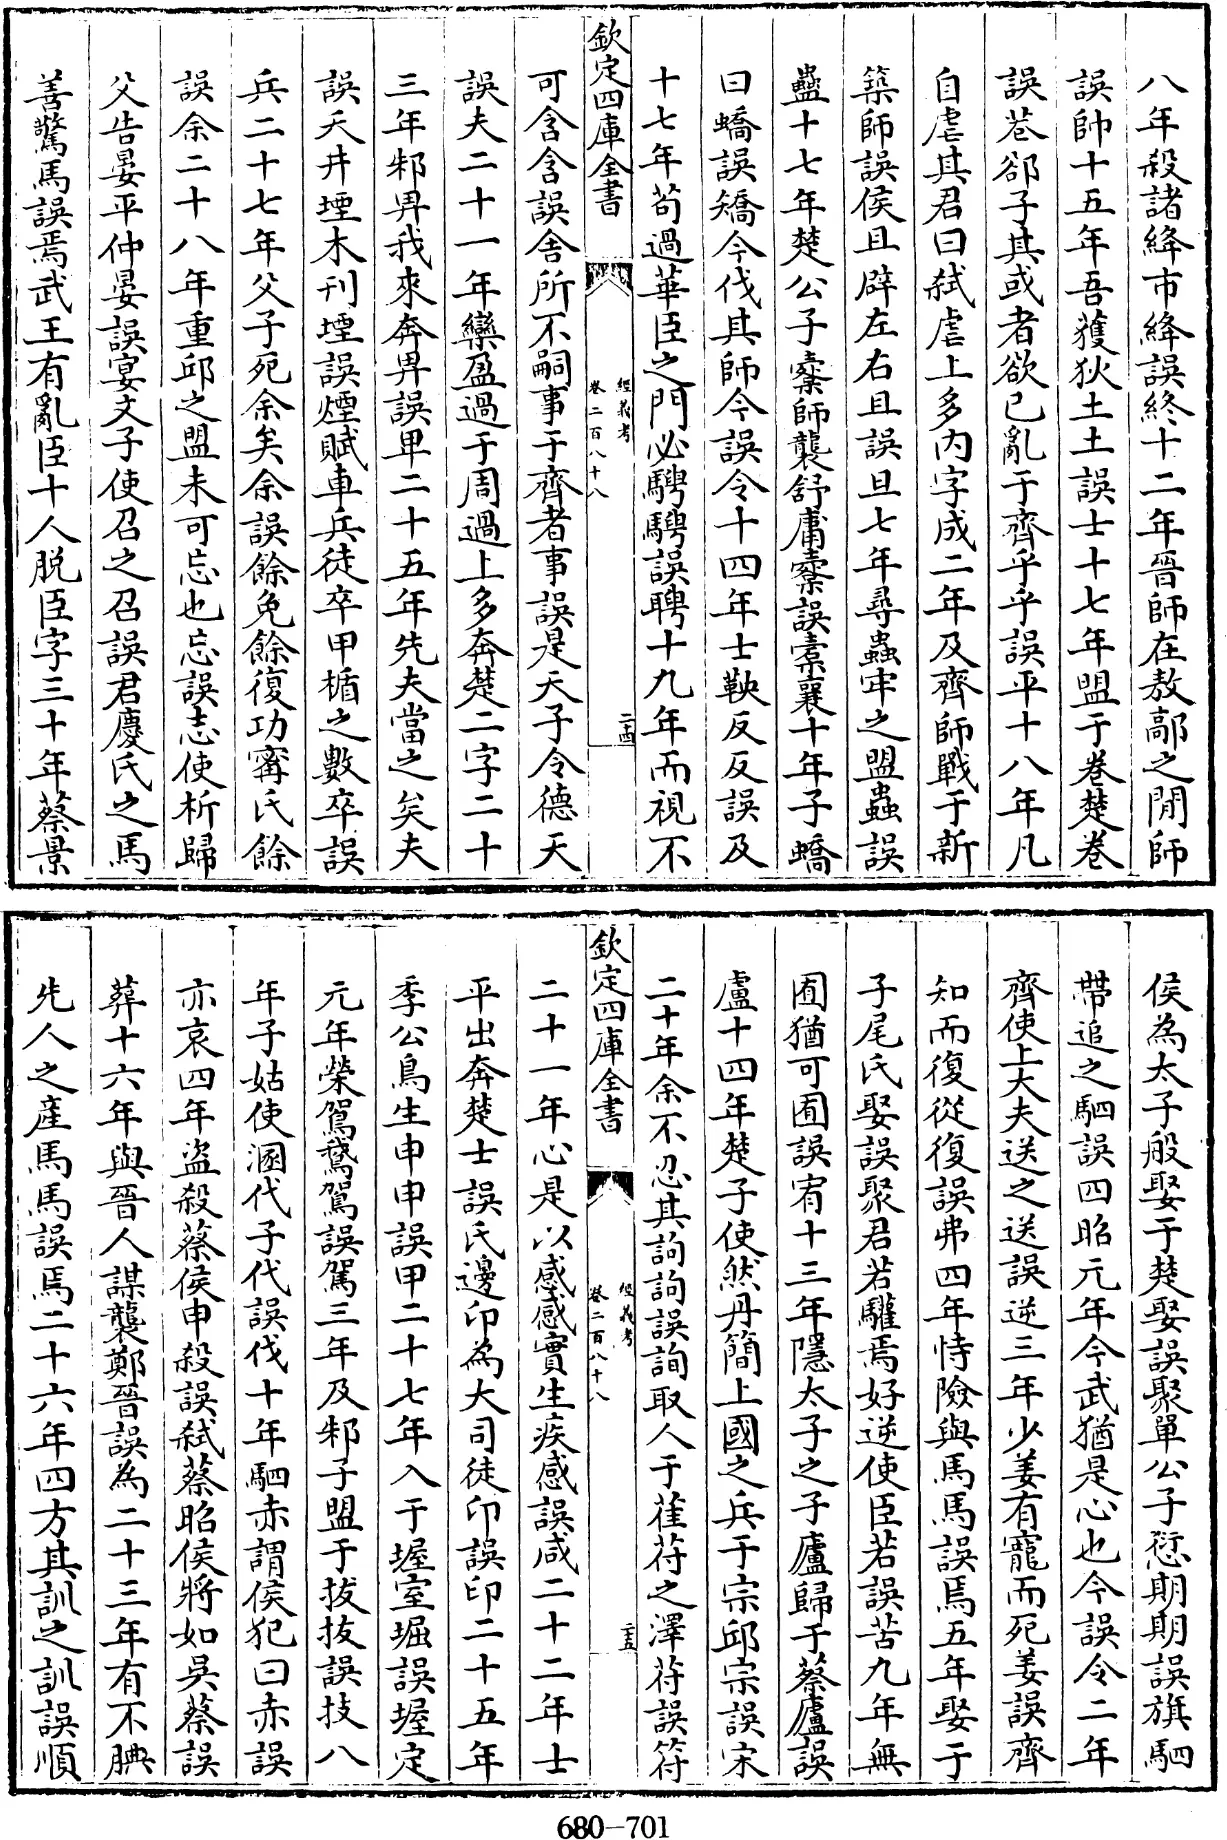 八年殺諸絳市絳誤終十二年晉師在敖鄗之閒師
誤帥十五年吾獲狄土土誤士十七年盟于卷楚卷
誤苍郤子其或者欲已亂于齊乎乎誤平十八年凡
自虐其君曰弑虐上多内字成二年及齊師戰于新
築師誤侯且辟左右且誤旦七年尋蟲牢之盟蟲誤
蠱十七年楚公子橐師襲舒庸橐誤槖襄十年子蟜
曰蟜誤矯今伐其師今誤令十四年士鞅反反誤及
十七年苟過華臣之門必騁騁誤聘十九年而視不
欽定四庫全書
經義考
卷二百八十八
二十四
可含含誤舍所不嗣事于齊者事誤是天子令德天
誤夫二十一年欒盈過于周過上多奔楚二字二十
三年邾畀我來奔畀誤卑二十五年先夫當之矣夫
誤天井堙木刊堙誤煙賦車兵徒卒甲楯之數卒誤
兵二十七年父子死余矣余誤餘免餘復功甯氏餘
誤余二十八年重邱之盟未可忘也忘誤志使析歸
父告晏平仲晏誤宴文子使召之召誤君慶氏之馬
善驚馬誤焉武王有亂臣十人脱臣字三十年蔡景
侯為太子般娶于楚娶誤聚單公子愆期期誤旗駟
帶追之駟誤四昭元年今武猶是心也今誤令二年
齊使上大夫送之送誤逆三年少姜有寵而死姜誤齊
知而復從復誤弗四年恃險與馬馬誤焉五年娶于
子尾氏娶誤聚君若驩焉好逆使臣若誤苦九年無
囿猶可囿誤宥十三年隱太子之子廬歸于蔡廬誤
盧十四年楚子使然丹簡上國之兵于宗邱宗誤宋
二十年余不忍其訽訽誤詢取人于萑苻之澤苻誤符
欽定四庫全書
經義考
卷二百八十八
二十五
二十一年心是以感感實生疾感誤咸二十二年士
平出奔楚士誤氏邊卬為大司徒卬誤印二十五年
季公鳥生申申誤甲二十七年入于堀室堀誤握定
元年榮駕鵞駕誤駕三年及邾子盟于拔拔誤技八
年子姑使溷代子代誤伐十年駟赤謂侯犯曰赤誤
亦哀四年盜殺蔡侯申殺誤弑蔡昭侯將如吳蔡誤
葬十六年與晉人謀襲鄭晉誤為二十三年有不腆
先人之産馬馬誤焉二十六年四方其訓之訓誤順
680-701